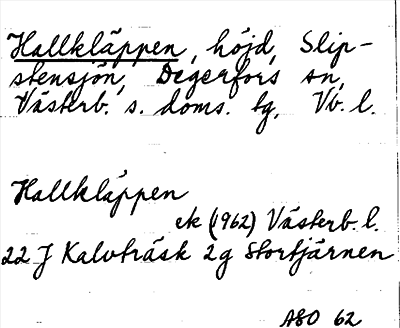 Hallkläppen, höjd, Slip-
stensjön, Degerfors sn,
Västerb. s. doms. tg, Vb. l.
Hallkläppen
ek (1962) Västerb. l.
22 J Kalvträsk 2g Stortjärnen
ASO 62